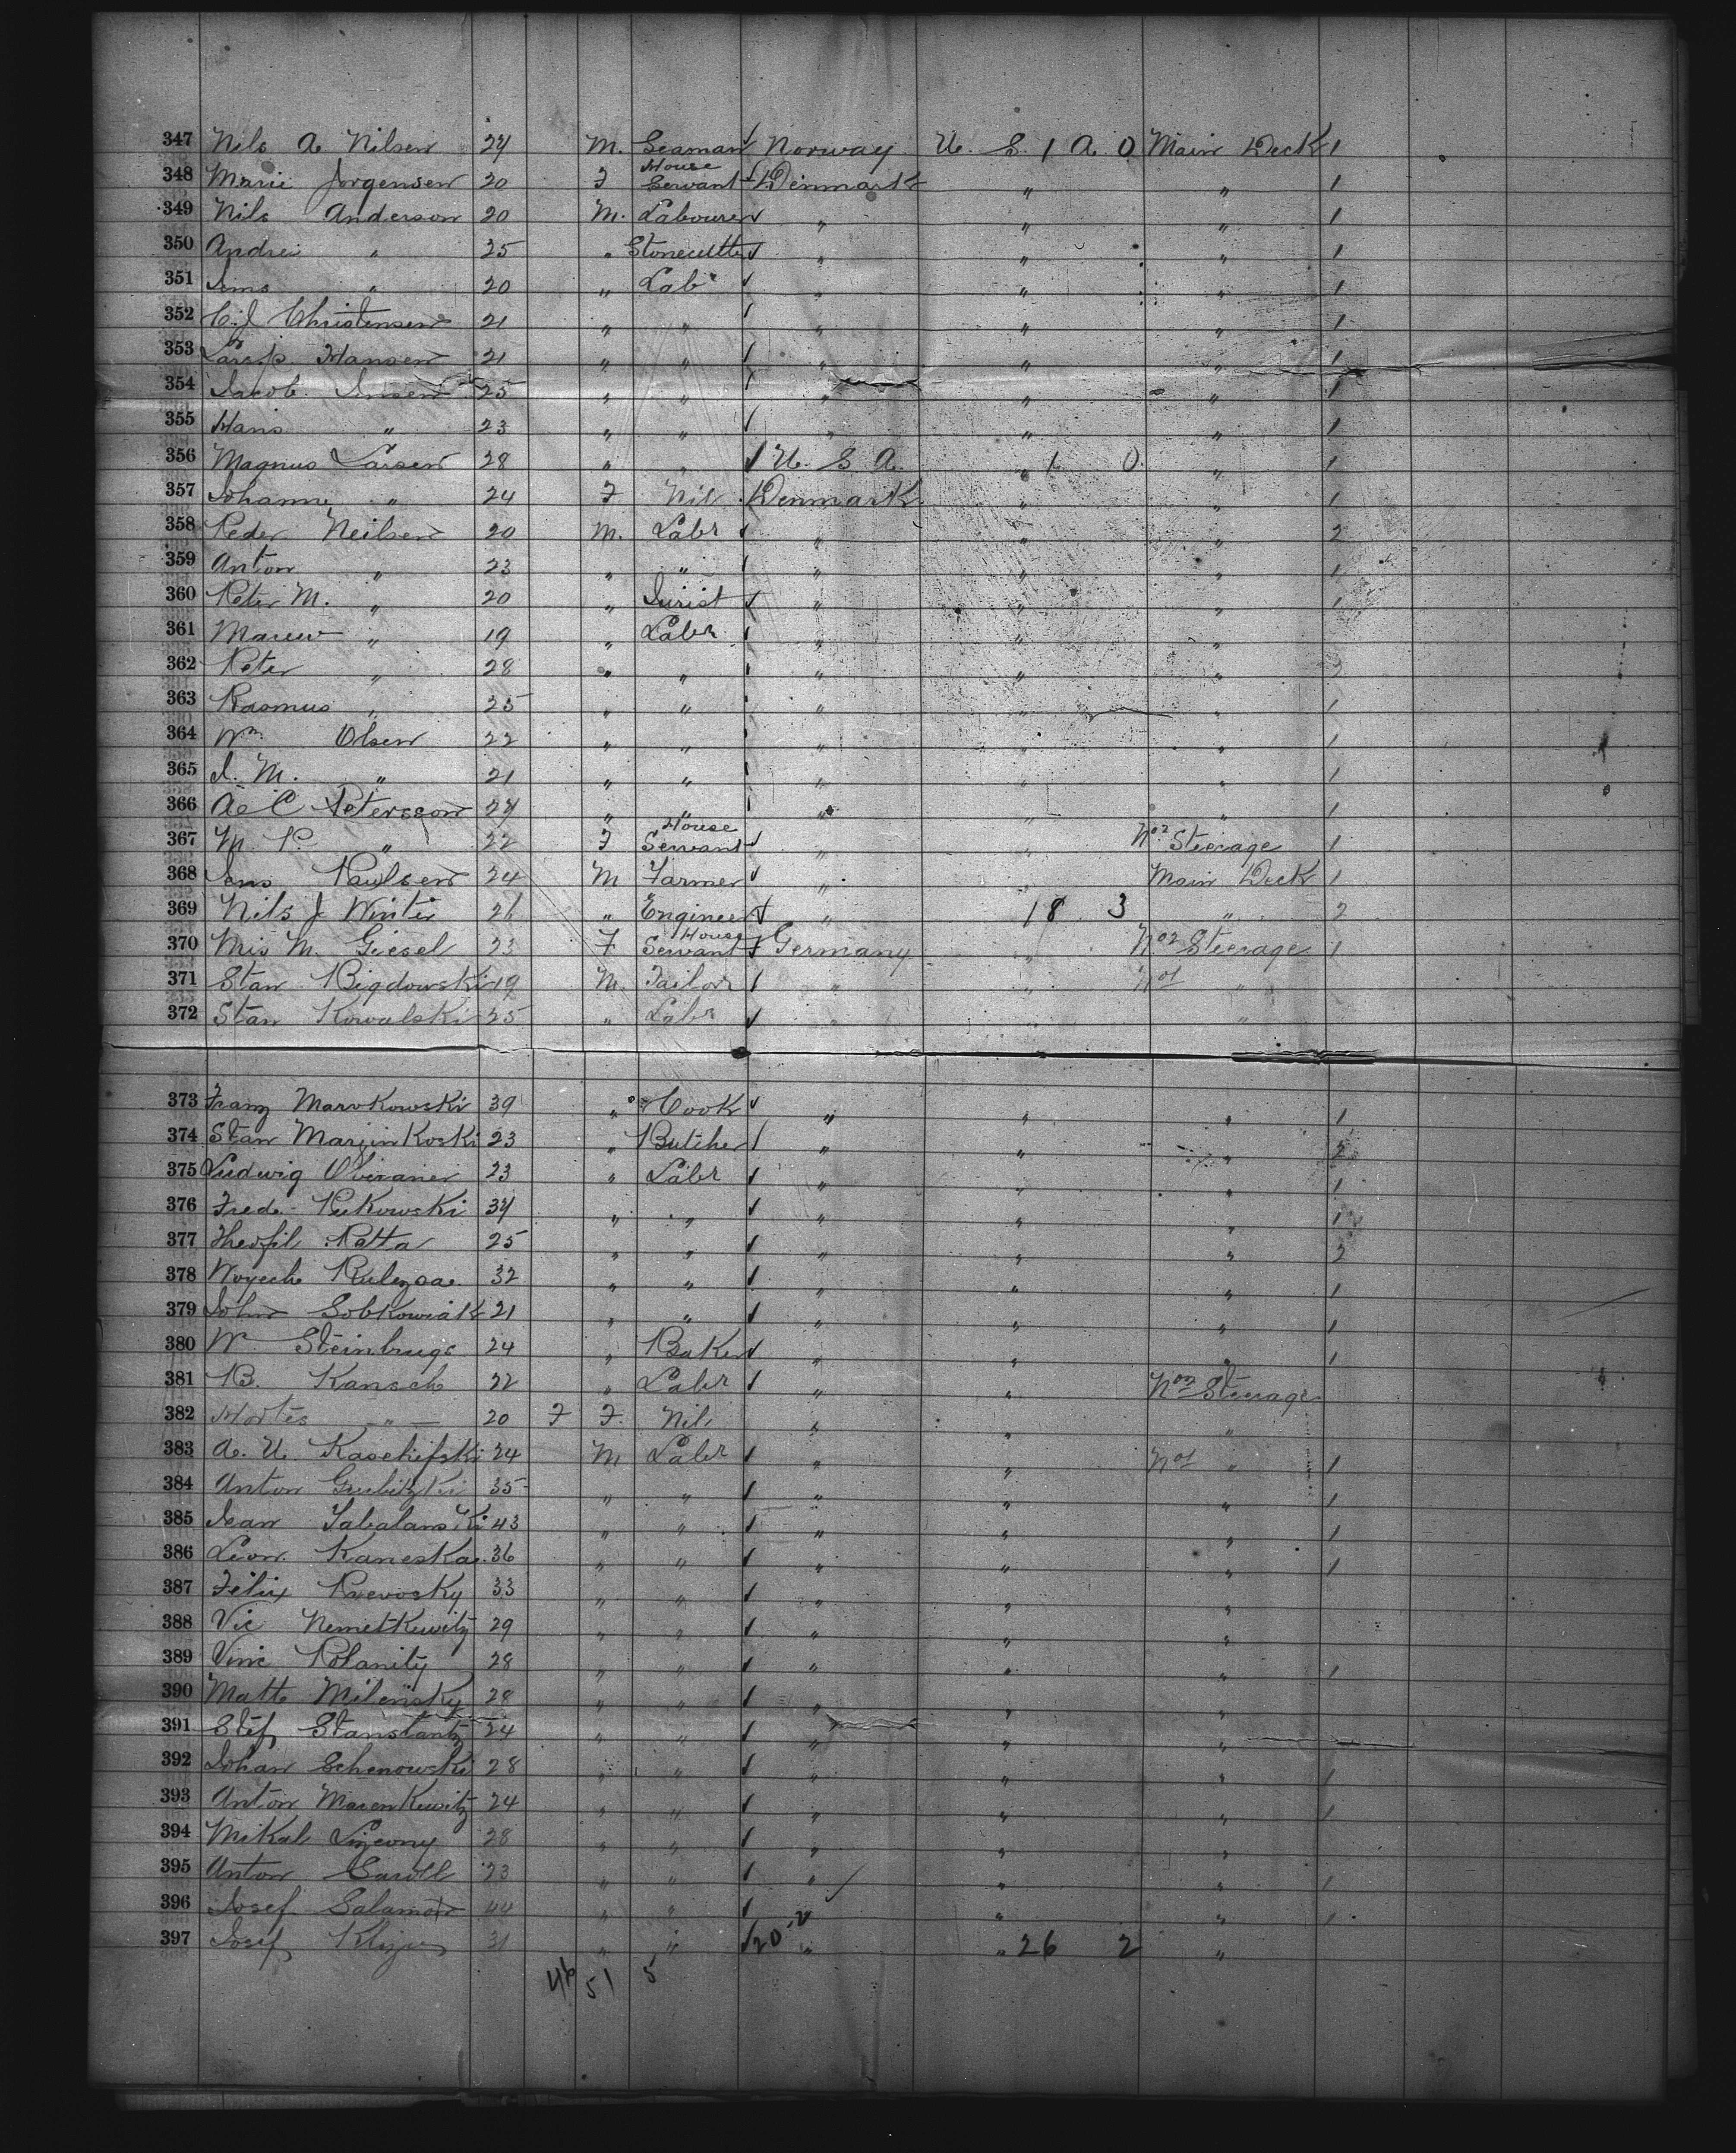 347 Nils A Nilsen 24 M. Seaman Norway U. S. 1 A 0 Main Deck 1
348 Marie Jorgensen 20 F House Servant Denmark " " 1
349 Nils Anderson 20 M. Labourer " " " 1
350 Andrei " 25 " Stonecutter " " " 1
351 Jens " 20 " Labr " " " 1
352 C. J Christensen 21 " " " " " 1
353 Lars P. Hansen 21 " " " " " 1
354 Jacob Jensen 25 " " " " " 1
355 Hans " 23 " " " " " 1
356 Magnus Larsen 28 " " U. S. A. " 1 0 " 1
357 Johanne " 24 F Nil Denmark " " 1
358 Peder Neilsen 20 M. Labr " " " 2
359 Anton " 23 " " " " " 1
360 Peter M. " 20 " Jurist " " " 1
361 " 19 " Labr " " "
362 Peter " 28 " " " " " 2
363 Rasmus " 25 " " " " " 1
364 Wm Olsen 22 " " " " " 1
365 J. M. " 21 " " " " " 1
366 A C Petersson 24 " " " " " 1
367 M. P. " 22 F House Servant " " No 2 Steerage 1
368 Jens Paulsen 24 M Farmer " " Main Deck 1
369 Nils J Winter 26 " Engineer " 18 3 " 2
370 Mis M. Giesel 23 F House Servant Germany " No 2 Steerage 1
371 Stan Bigdowski 19 M. Tailor " " No 1 "
372 Stan Kowalski 25 " Labr " " "
373 Franz Markowski 39 " Cook " " " 1
374 Stan Marzinkoski 23 " Butcher " " " 2
375 Ludwig 23 " Labr " " " 1
376 Fred Pukowski 34 " " " " " 1
377 Theofil Ratta 25 " " " " " 2
378 Woyech 32 " " " " " 1
379 John Sobkowiak 21 " " " " " 1
380 Wm Steinbrugs 24 " Baker " " " 1
381 B. Kansch 22 " Labr " " No 2 Steerage
382 " 20 F F. Nil " " "
383 A. U. Kaschifski 24 M Labr " " No 1 " 1
384 Anton Gulitzki 35 " " " " " 1
385 Jean 43 " " " " " 1
386 Leon Kaneska 36 " " " " " 1
387 Felix 33 " " " " "
388 Vic Nemetkewitz 29 " " " " "
389 Vinc Polanity 28 " " " " " 1
390 Matte Milensky 28 " " " " "
391 Stef Stanslantz 24 " " " " "
392 Johan Schenowski 28 " " " " " 1
393 Anton Marenkewitz 24 " " " " " 1
394 Mikal 28 " " " " "
395 Anton Caroll 23 " " " " " 1
396 Josef Salamon 44 " " " " " 1
397 Josef 31 " " 20 " " 26 2 "
46 51 5